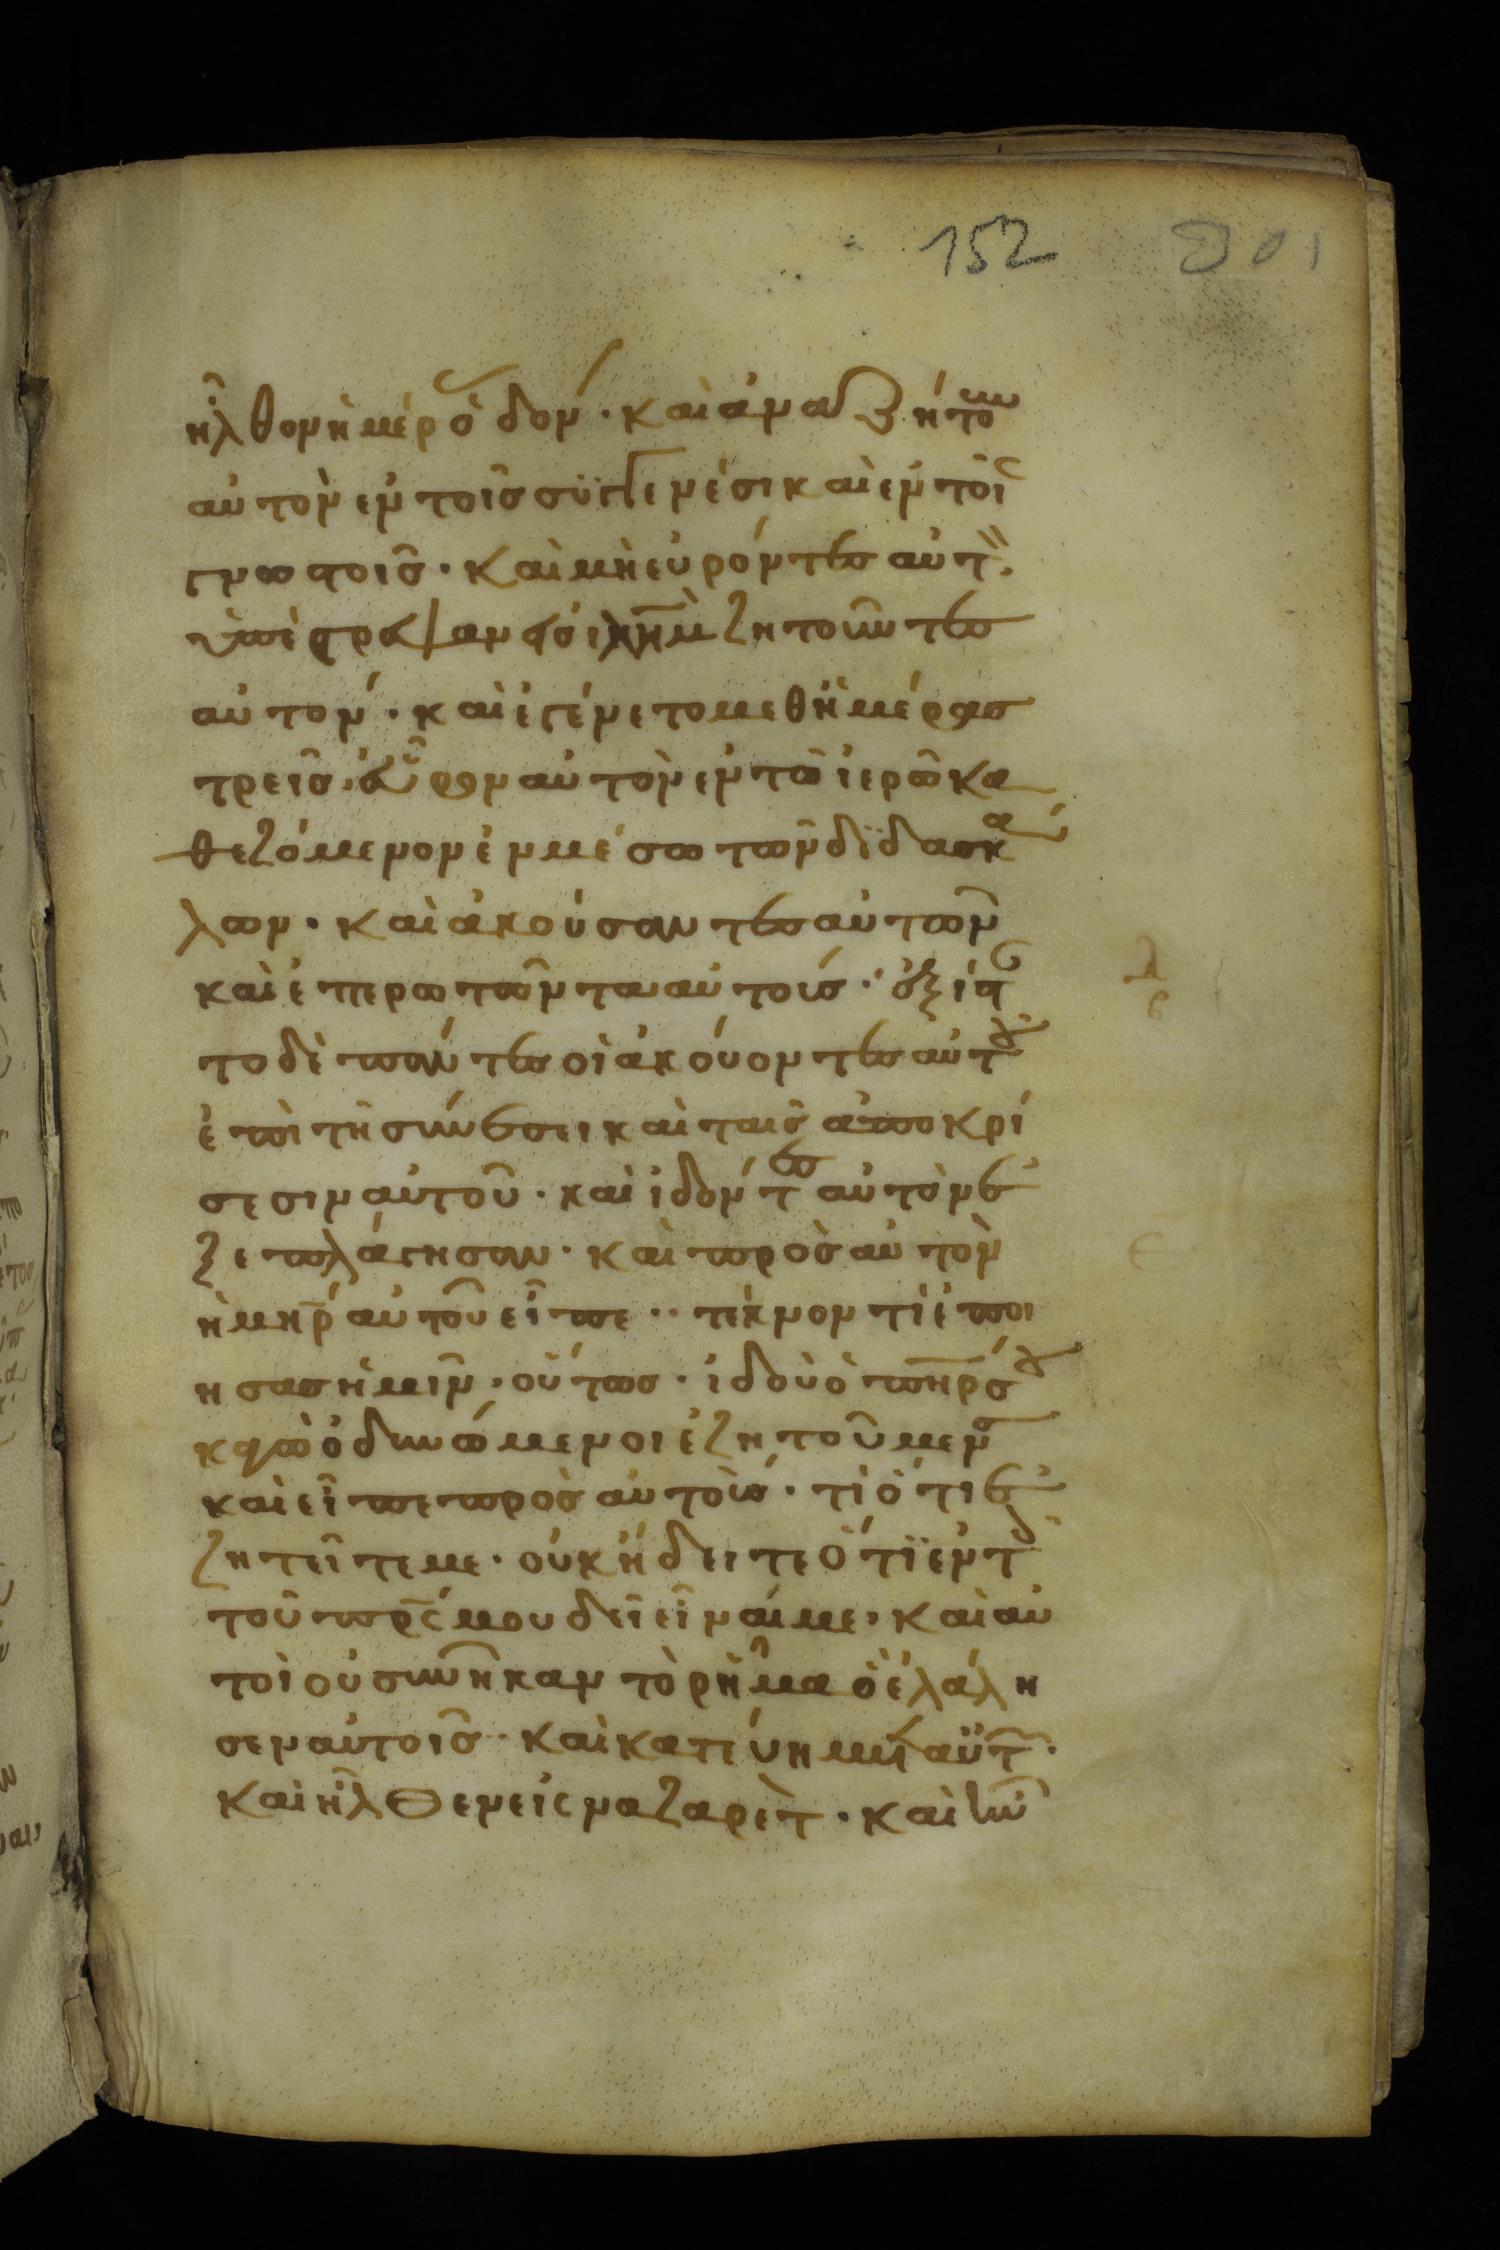 152 801
ἦλθον ἡμέρ ὁδόν · καὶ ἀνεζήτουν
αὐτὸν ἐν τοῖς συγγενέσι καὶ ἐν τοῖς
γνωστοῖς · καὶ μὴ εὑρόντες αὐτ
ὑπέστρεψαν εἰς ἱλημ ζητοῦντες
αὐτόν · καὶ ἐγένετο μεθ ἡμέρας
τρεῖς · εὗρον αὐτὸν ἐν τῶ ἱερῶ κα
θεζόμενον ἐν μέσω τῶν διδασκά
λων · καὶ ἀκούοντα αὐτῶν
καὶ ἐπερωτῶντα αὐτούς · ἐξίσταν
το δὲ πάντες οἱ ἀκούοντες αὐτοῦ
ἐπὶ τῆ συνέσει καὶ ταῖς ἀποκρί
σεσιν αὐτοῦ · καὶ ἰδόντες αὐτὸν ἐ
ξεπλάγησαν · καὶ πρὸς αὐτὸν
ἡ μηρ αὐτοῦ εἶπε · τέκνον τί ἐποί
ησας ἡμῖν · οὕτως · ἰδοὺ ὁ πηρ σου
κἀγὼ ὀδυνώμενοι ἐζητοῦμεν σε
καὶ εἶπε πρὸς αὐτούς · τί ὅτι ἐ
ζητεῖτε με · οὐκ ἤδειτε ὅτι ἐν τοῖς
τοῦ πρς μου δεῖ εἶναί με · καὶ αὐ
τοὶ οὐ συνῆκαν τὸ ῥῆμα ὃ ἐλάλη
σεν αὐτοῖς · καὶ κατέβη μετ αὐτῶν ·
καὶ ἦλθεν εἰς ναζαρέτ · καὶ ἦν